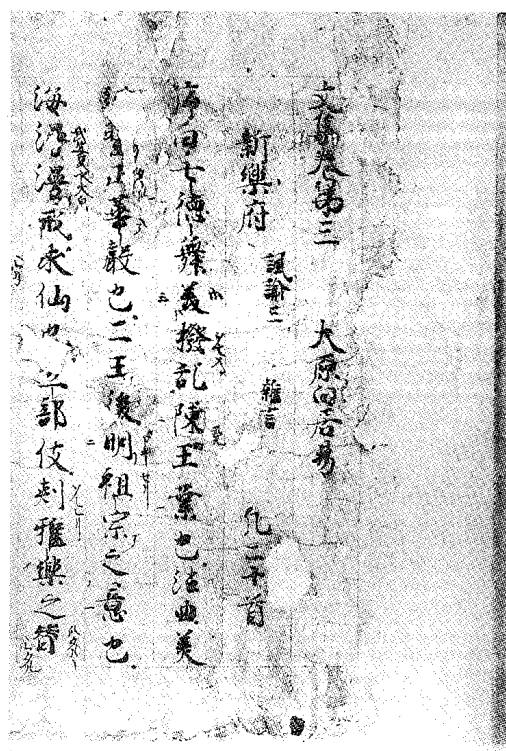 文集卷第三　大原白居易
新樂府　諷諭三　雜言　凡二十首
序曰七德舞美撥乱陳王業也法曲美
列聖正華聲也二王後明祖宗之意也
海漫漫戒求仙也立部伎刺雅樂之替